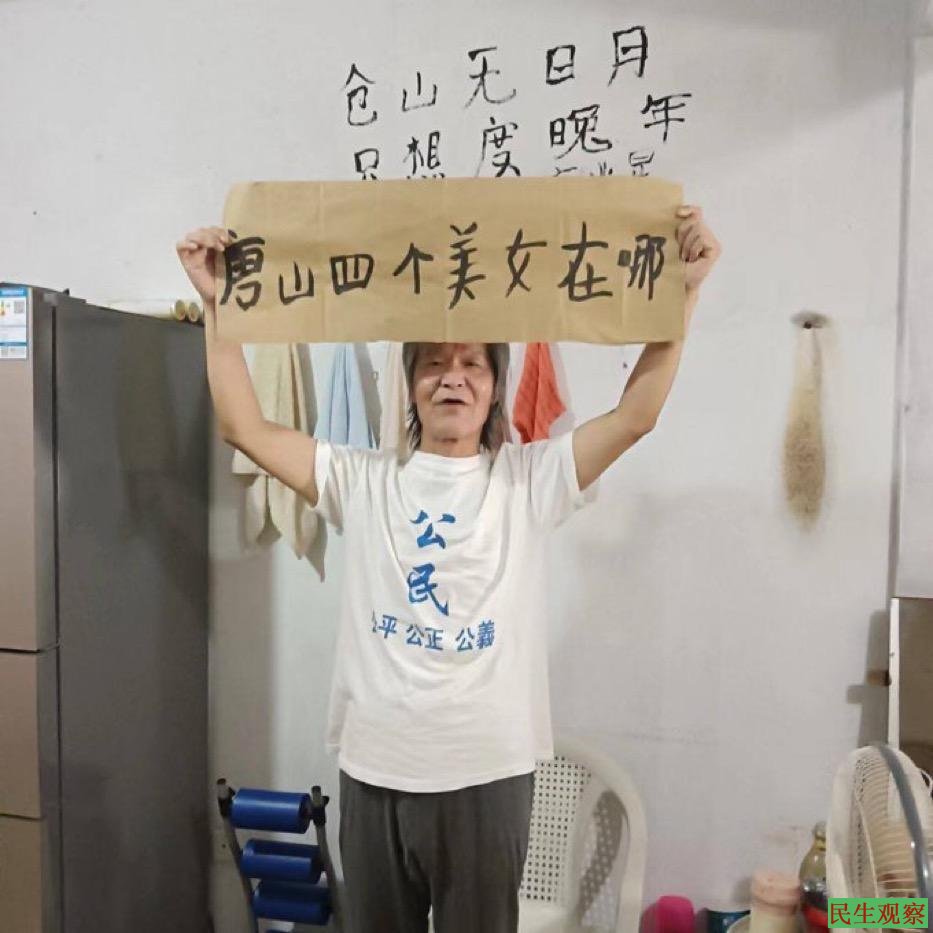 仓山无日月
只想度晚年
唐山四个美女在哪
公民
公平 公正 公義
民生观察